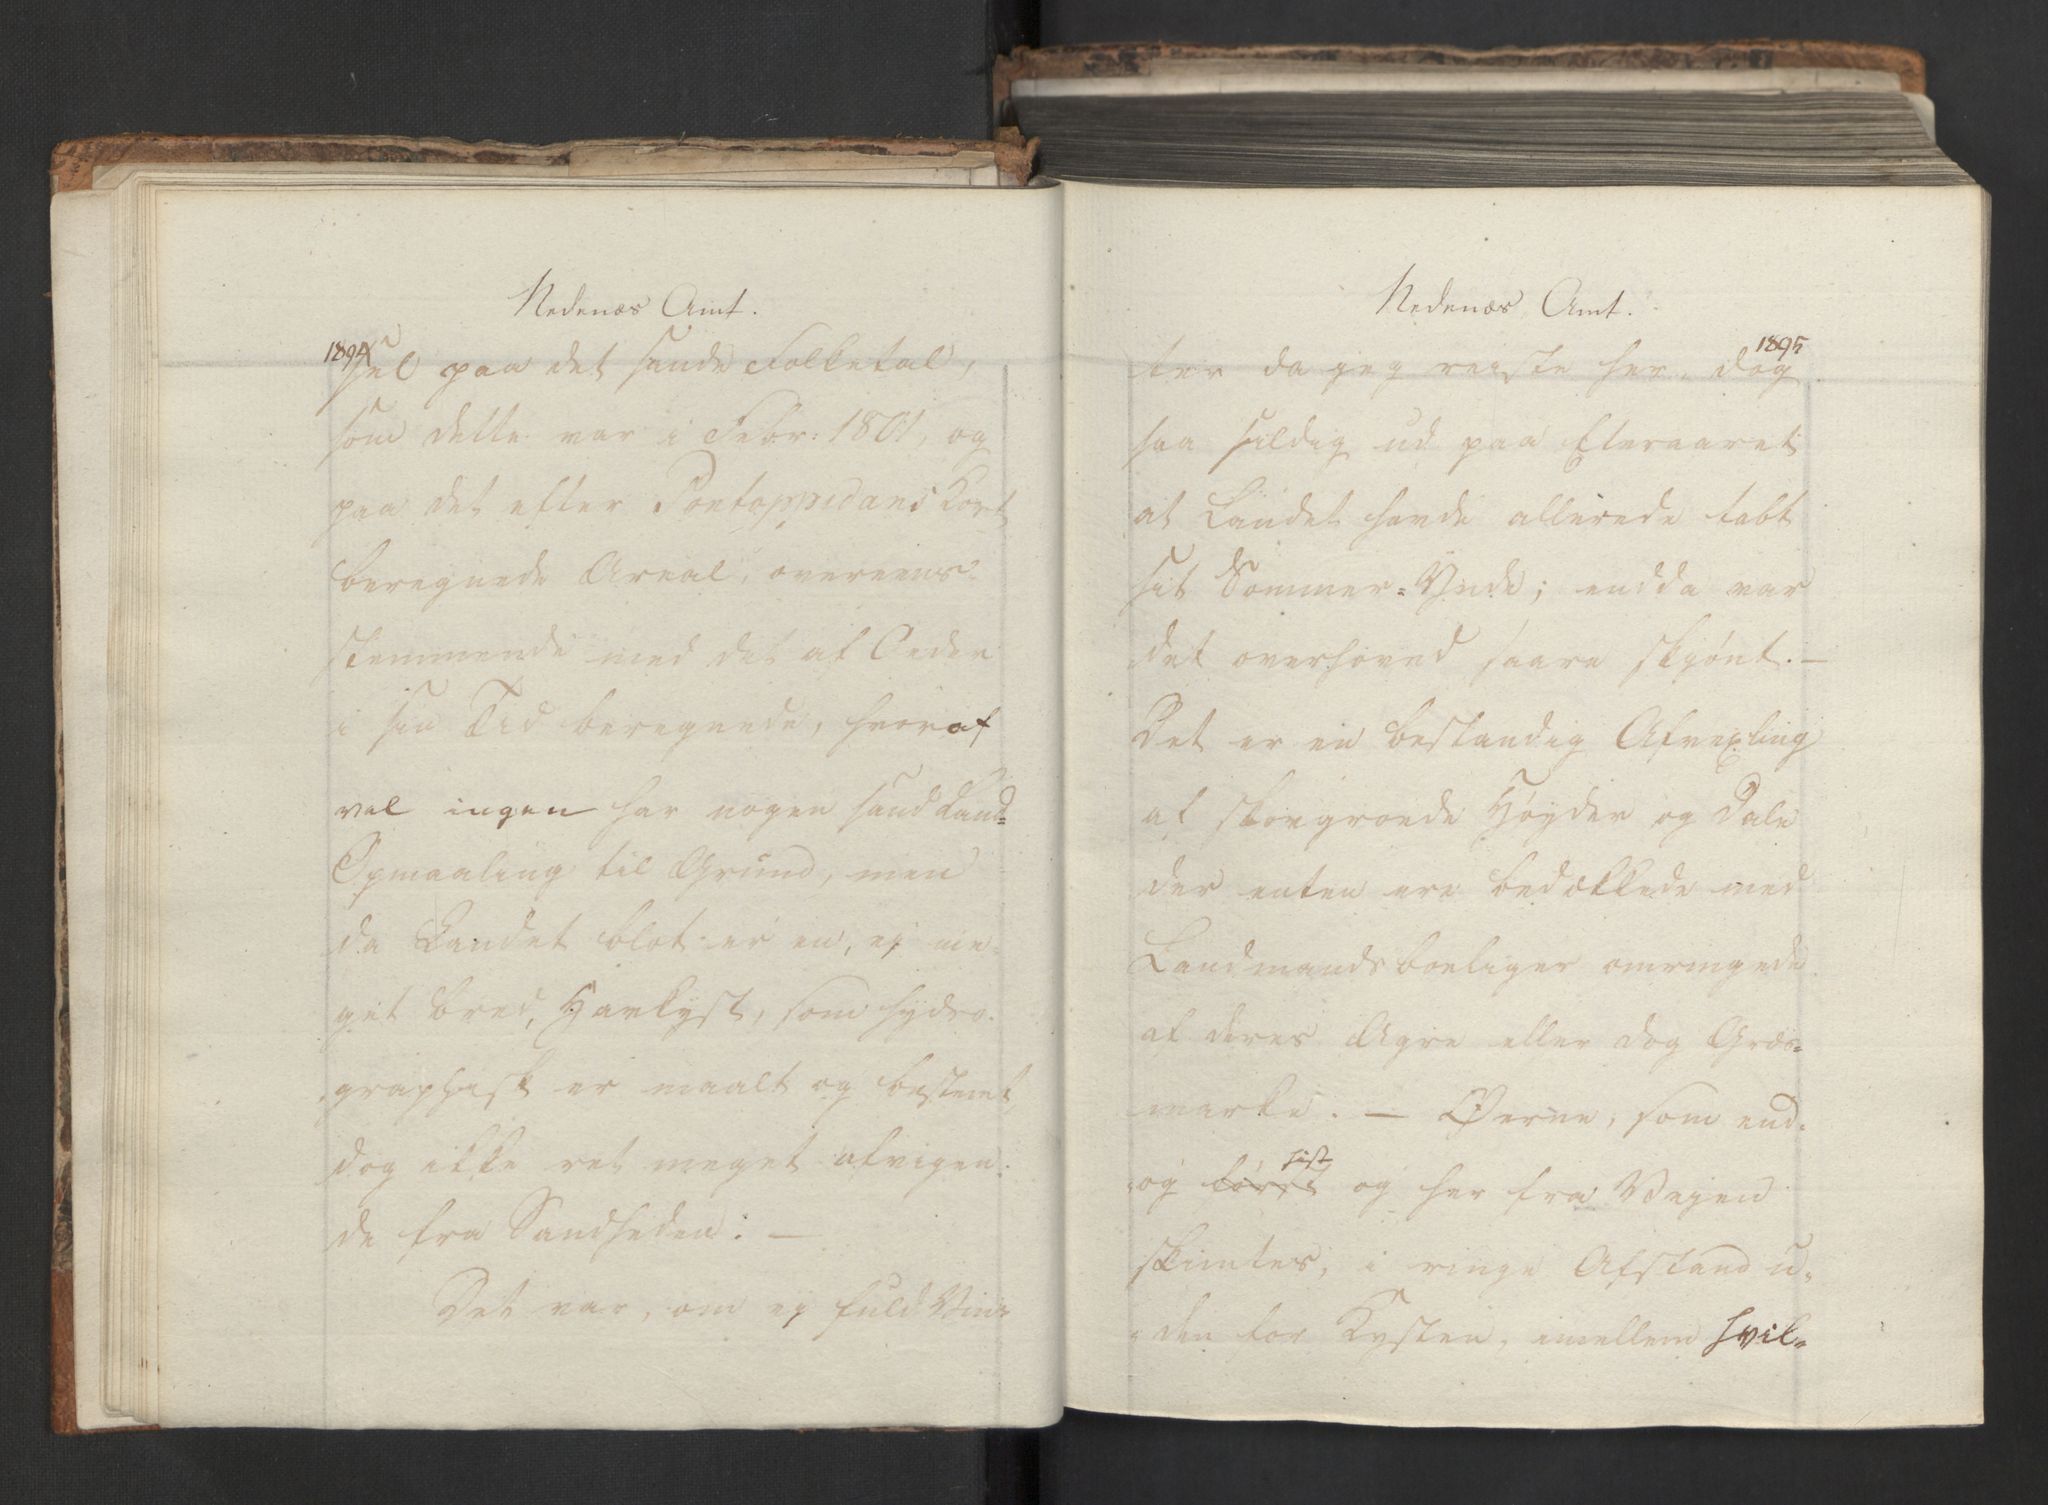 Nedenæs Amt.
1894
sel paa det sande Folketal,
som dette var i Febr: 1801, og
paa det efter Pontoppidans Kort
beregnede Areal, overeens-
stemmende med det af Oeder
i sin Tid beregnede, hvoraf
vel ingen har nogen sand Land-
Opmaaling til Grund, men
da Landet blot er en, ej me-
get bred, Havkyst, som hydro-
graphisk er maalt og bestemt,
dog ikke ret meget afvigen-
de fra Sandheden. —
Det var, om ej fuld Vin-
Nedenæs Amt.
1895
ter da jeg reiste her, dog
saa sildig ud paa Efteraaret
at Landet havde allerede tabt
sit Sommer-Ynde; endda var
det overhoved saare skjønt. —
Det er en bestandig Afvexling
af skovgroede Høyder og Dale
der enten ere bedækkede med
Landmandsboeliger omringede
af deres Agre eller dog Græs-
marke. — Øerne, som end-
og først sist og her fra Vejen
skimtes, i ringe Afstand u-
den for Kysten, imellem hvil-